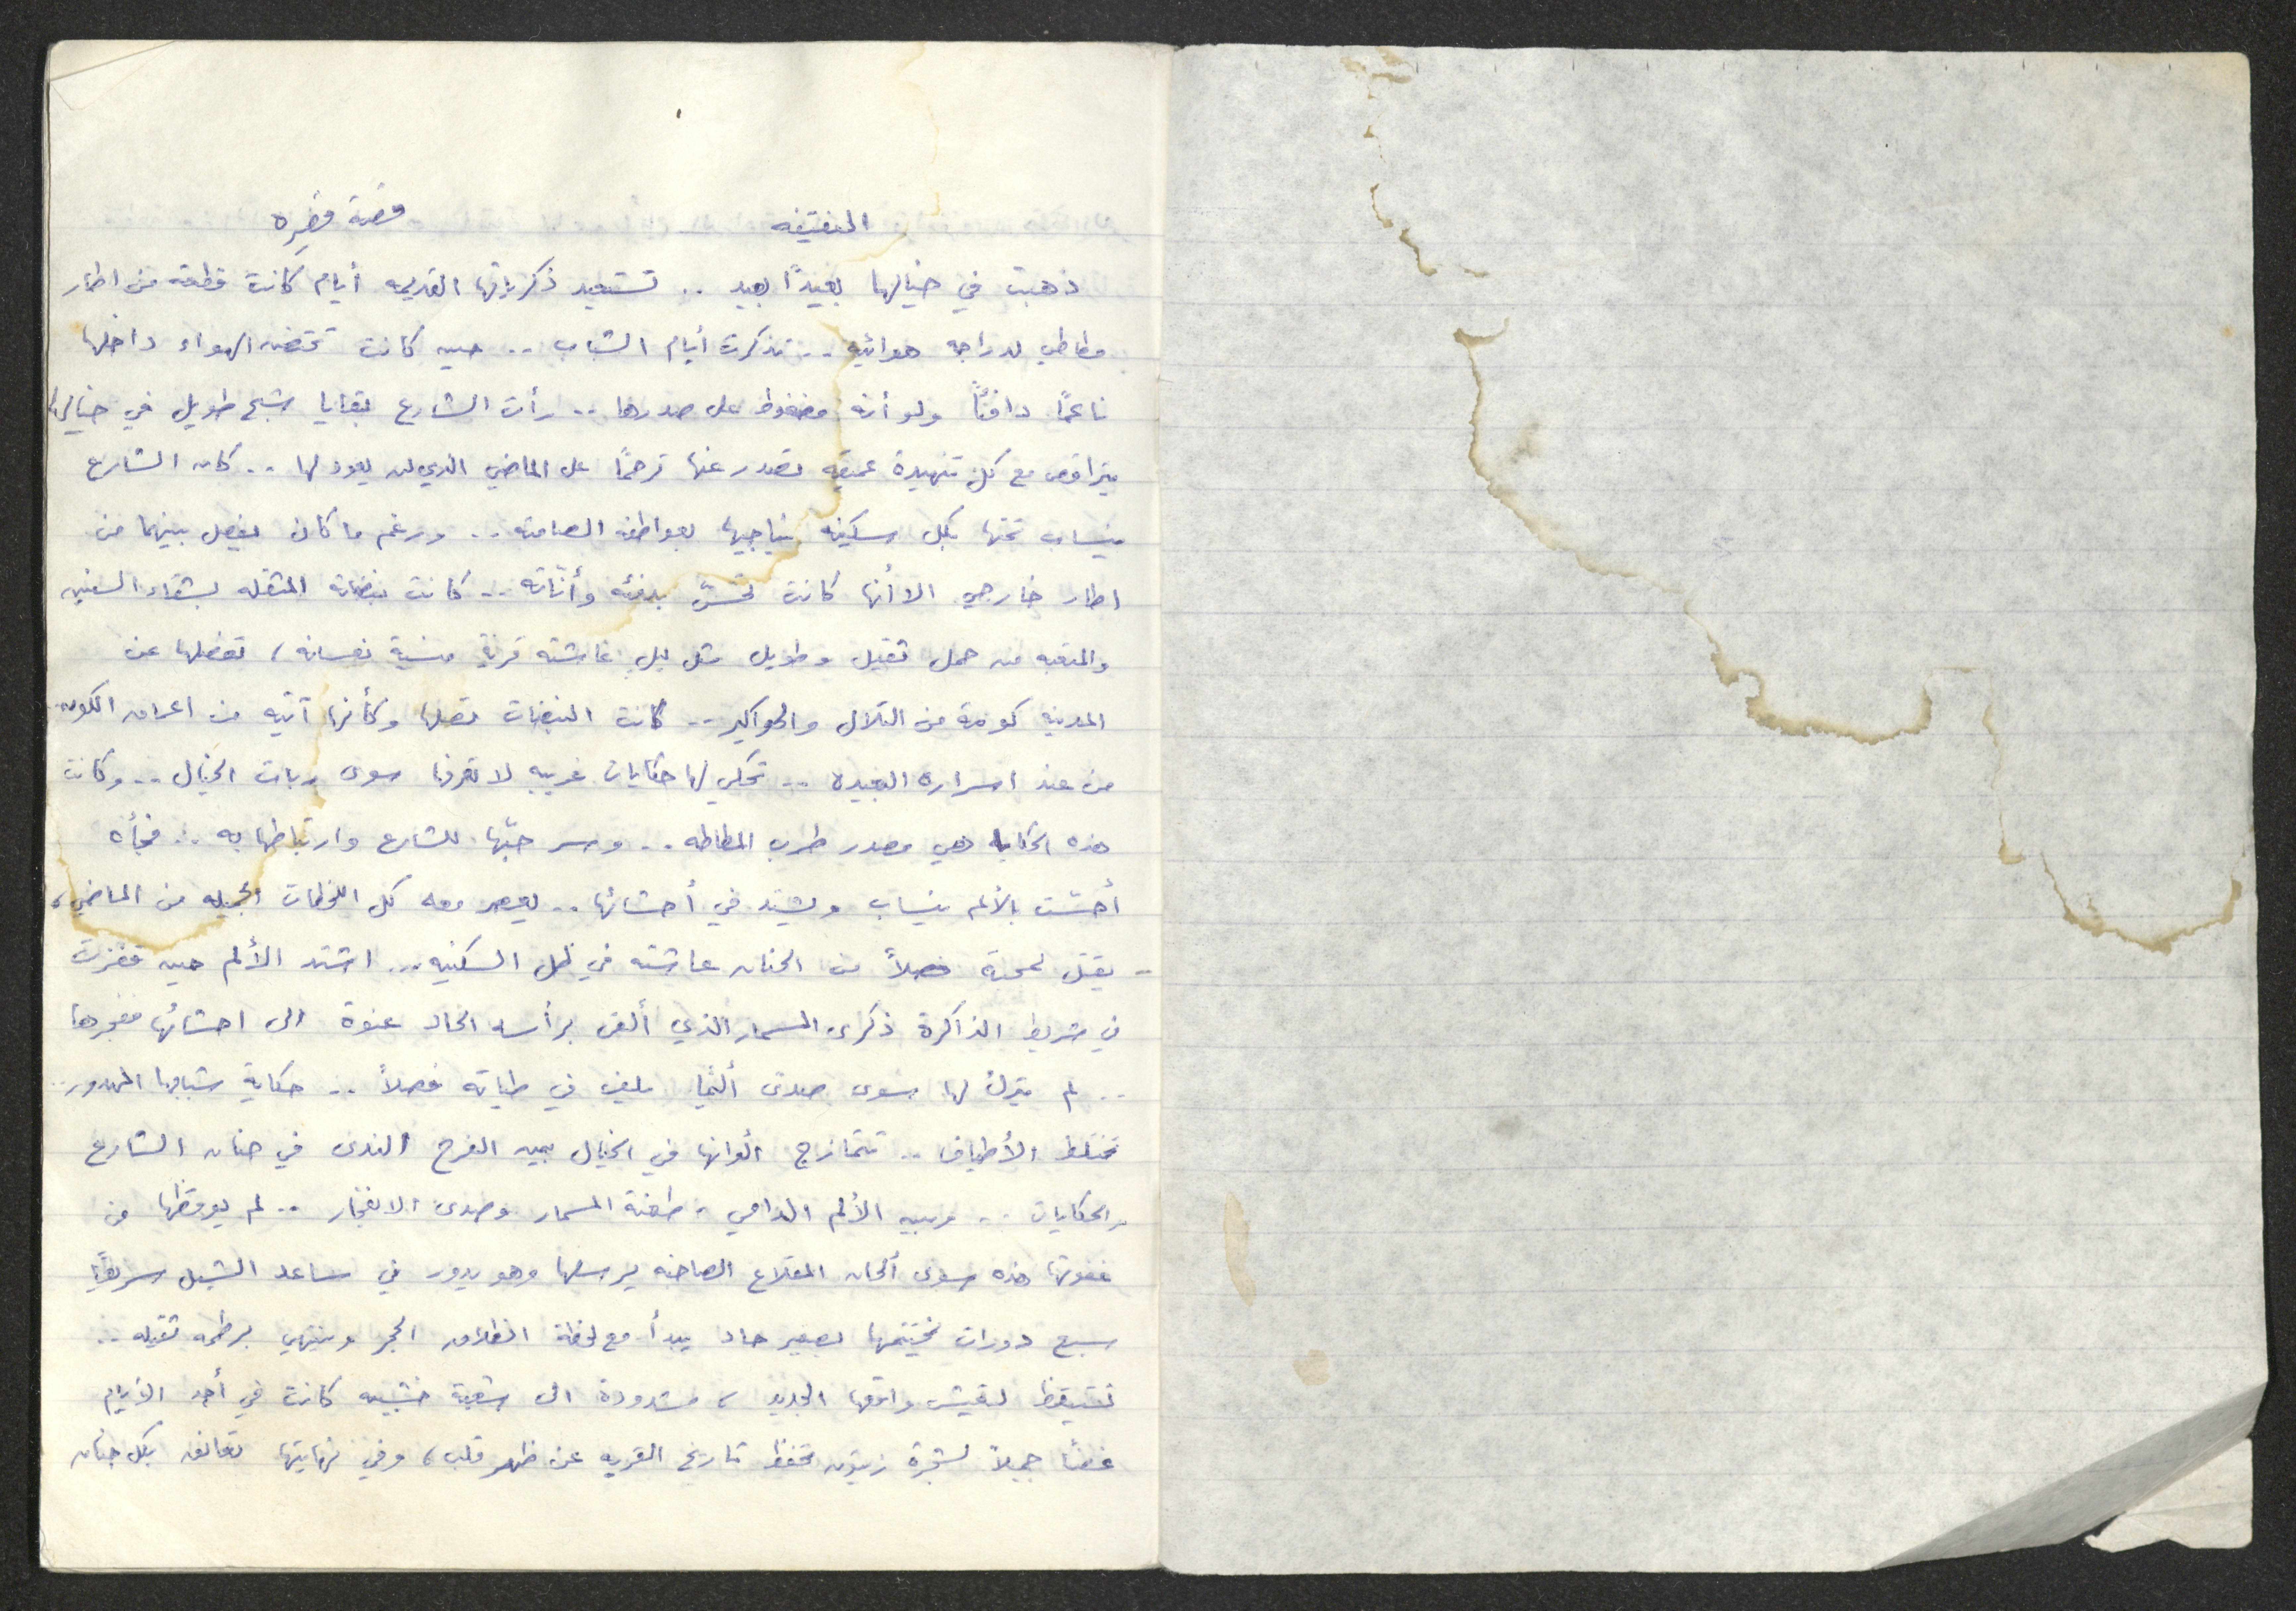 المنقيفه قصة قصيره
ذهبت في خيالها بعيدًا بعيد .. تستعيد ذكرياتها القديمه أيام كانت قطعة من اطار
مطاطي لدراجه هوائيه .. تذكرت أيام الشباب .. حين كانت تحتضن الهواء داخلها
ناعمًا دافئًا ولو أنه مضغوط على صدرها .. رأت الشارع بقايا شبح طويل في خيالها
يتراقص مع كل تنهيدة عميقه تصدر عنها ترحمًا على الماضي الذي لن يعود لها .. كان الشارع
ينساب تحتها بكل سكينه يناجيها بعواطفه الصامته .. ورغم ما كان يفصل بينهما من
اطار خارجي الا أنها كانت تحسّ بدفئه وأنّاته .. كانت نبضاته المثقله بشقاء السنين
والمتعبه من حمل ثقيل وطويل مثل ليل عاشته قرية منسية نعسانه ، تفصلها عن
المدينه كومة من التلال والحواكير .. كانت النبضات تصلها وكأنها آتيه من اعماق الكون
من عند اسراره البعيده .. تحكي لها حكايات غريبه لا تعرفها سوى ربات الخيال .. وكانت
هذه الحكايا هي مصدر طرب المطاطه .. وسر حبّها للشارع وارتباطها به .. فجأه
أحسّت بالألم ينساب ويشتد في أحشائها .. يعصر معه كل اللحظات الجميله من الماضي ،
.. يقتل لمحة فصلاً من الحنان عاشته في ظل السكينه .. اشتد الألم حين قفزت
في شريط الذاكرة ذكرى المسمار الذي ألقى برأسه الحاد عنوة الى احشائها ففجرها
.. لم يترك لها سوى صدى أليمًا يلف في طياته فصلاً .. حكاية شبابها المهدور ..
تختلط الأطياف .. تتمازج الوانها في الخيال بين الفرح الندى في حنان الشارع
والحكايات .. وبين الألم الدامي ، طعنة المسمار وصدى الانفجار .. لم يوقظها من
غفوتها هذه سوى ألحان المقلاع الصاخبه يرسلها وهو يدور في ساعد الشبل سريعًا
سبع دورات يختتمها بصفير حاد يبدأ مع لحظة انطلاق الحجر وينتهي برطمه ثقيله ..
تستيقظ لتعيش واقعها الجديد ، مشدودة الى شعبة خشبيه كانت في أحد الأيام
غصنًا جميلاً لشجرة زيتون تحفظ تاريخ القريه عن ظهر قلب ، وفي نهايتها تعانق بكل حنان